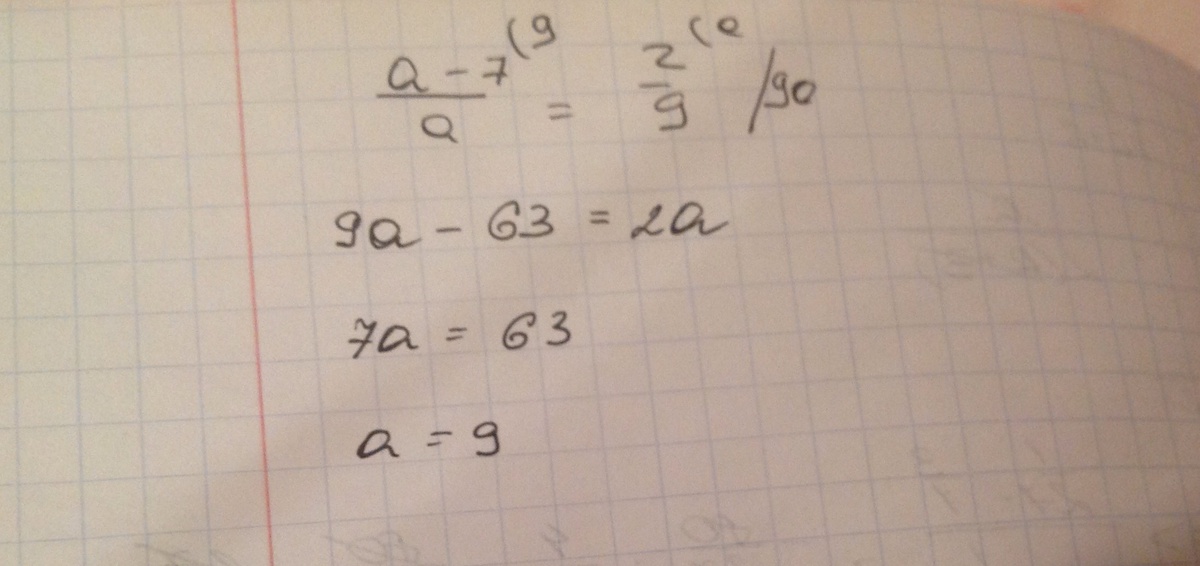 (a - 7)/a (9 = 2/9 (a /9a
9a - 63 = 2a
7a = 63
a = 9